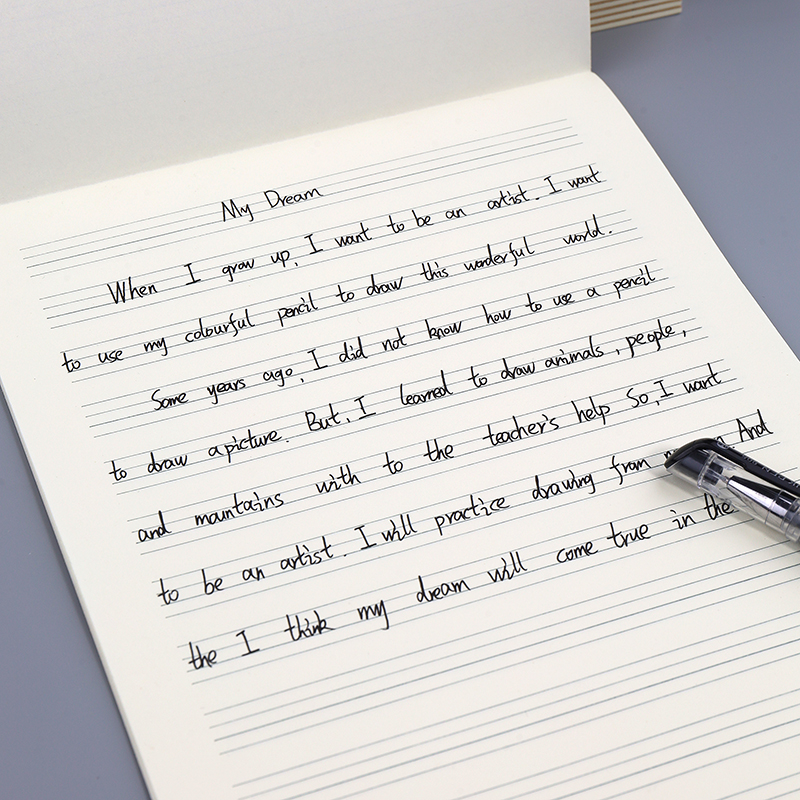 My Dream
When I grow up, I want to be an artist. I want
to use my colourful pencil to draw this wonderful world.
Some years ago, I did not know how to use a pencil
to draw a picture. But, I learned to draw animals, people,
and mountains with to the teacher's help So, I want
to be an artist. I will practice drawing from And
the I think my dream will come true in the